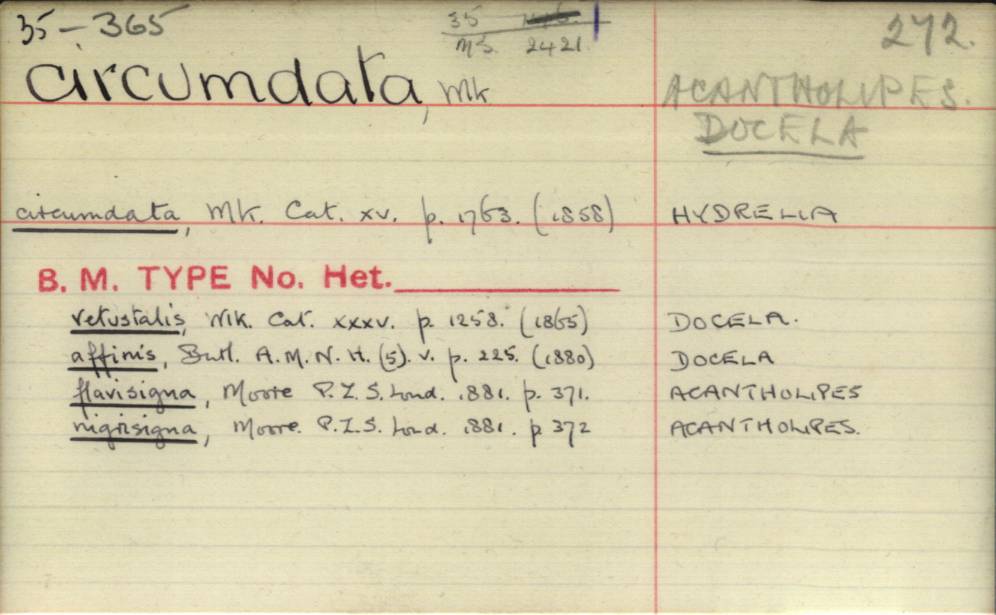 35 – 365
35
M/S. 2421
272.
circumdata, Wlk
ACANTHOLIPES.
DOCELA
circumdata, Wlk. Cat. xv. p. 1763. (1858) HYDRELIA
B. M. TYPE No. Het.
vetustalis, Wlk. Cat. xxxv. p. 1258. (1865) DOCELA.
affinis, Butl. A.M.N.H. (5). v. p. 225. (1880) DOCELA
flavisigna, Moore P.Z.S. Lond. 1881. p. 371. ACANTHOLIPES
nigrisigna, Moore. P.Z.S. Lond. 1881. p 372 ACANTHOLIPES.